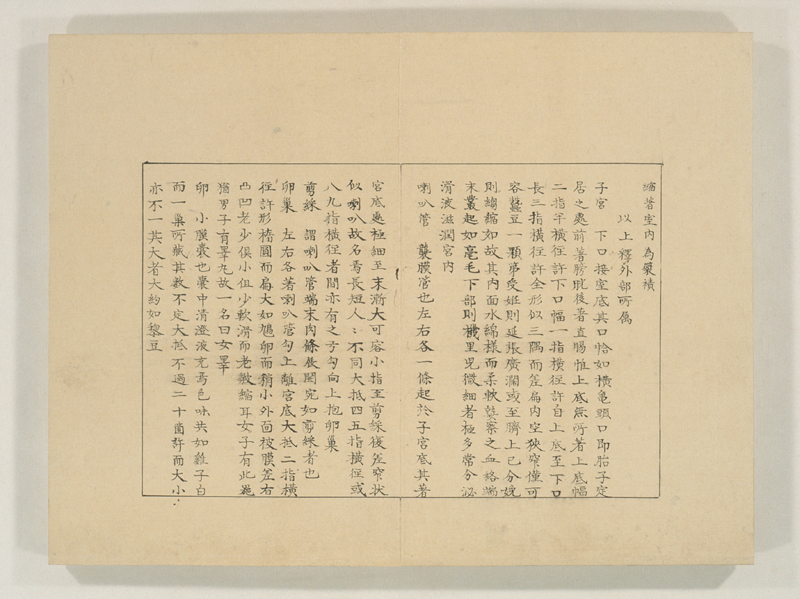 縮著室内為襞積
以上釋外部所属
子宮　下口接室底其口恰如横龜頭口即胎子定
居之處前著膀胱後著直腸惟上底無所著上底幅
二指半横徑許下口幅一指横徑許自上底至下口
長三指横徑許全形似三隅而差扁内空狹窄僅可
容蠶豆一顆第受姙則延張廣濶或至臍上已分娩
則縮縮如故其内面水綿様而柔軟熟察之血絡端
末叢起如毫毛下部則横里皃微細者極多常分泌
滑液滋潤宮内
喇叭管　襞膜管也左右各一條起於子宮底其著
宮底處極細至末漸大可容小指至剪綵復差窄状
似喇叭故名焉長短人々不同大抵四五指横徑或
八九指横徑者間亦有之予勾向上抱卵巢
剪綵　謂喇叭管端末肉條披開宛如剪綵者也
卵巢　左右各著喇叭管勾上離宮底大抵二指横
徑許形橢圓而扁大如鳩卵而稍小外面被膜差有
凸凹老少俱小但少軟滑而老皺縮耳女子有此巢
猶男子有睪丸故一名曰女睪
卵　小膜囊也囊中清澄液充焉色味共如雞子白
而一巢所藏其數不定大抵不過二十箇許而大小
亦不一其大者大約如黎豆